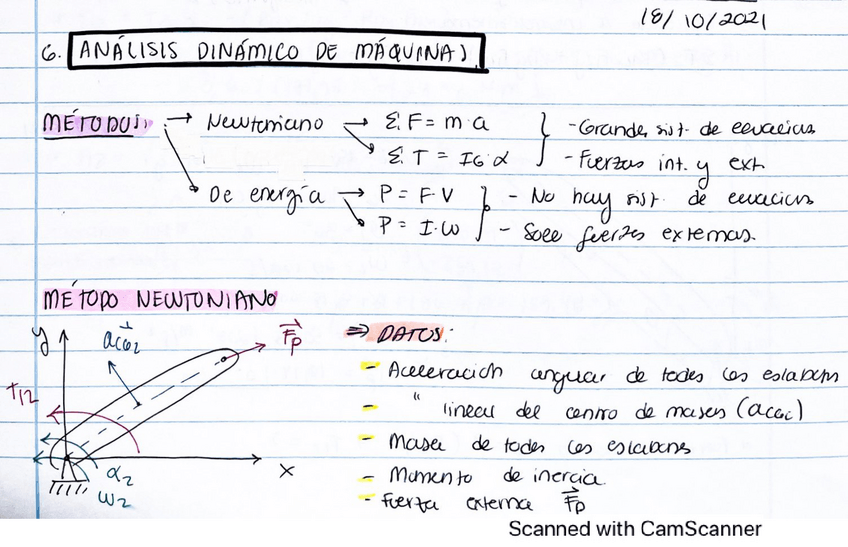 18/10/2021
6. ANÁLISIS DINÁMICO DE MÁQUINAS
MÉTODOS: → Newtoniano → Σ F = m·a } - Grandes sist. de ecuaciones
Σ T = IG·α - Fuerzas int. y ext.
De energía → P = F·V } - No hay sist. de ecuaciones
P = I·ω - Solo fuerzas externas.
MÉTODO NEWTONIANO
y
aCG2
Fp
T12
x
α2
ω2
⇒ DATOS:
- Aceleración angular de todos los eslabones
- " lineal del centro de masas (aCGi)
- Masa de todos los eslabones
- Momento de inercia.
- Fuerza externa Fp
Scanned with CamScanner